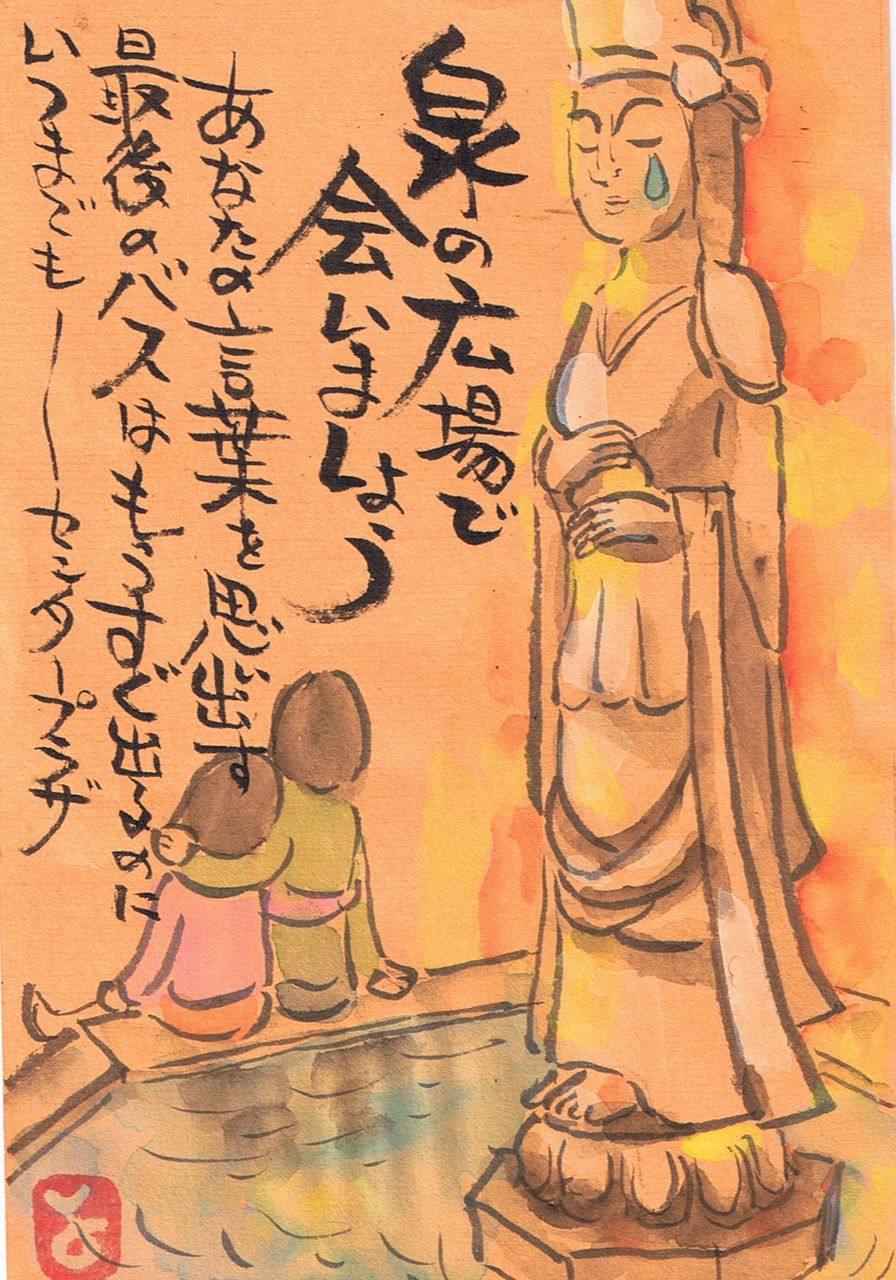 泉の広場で
会いましょう
あなたの言葉を思出す
最後のバスはもうすぐ出るのに
いつまでも
センタープラザ